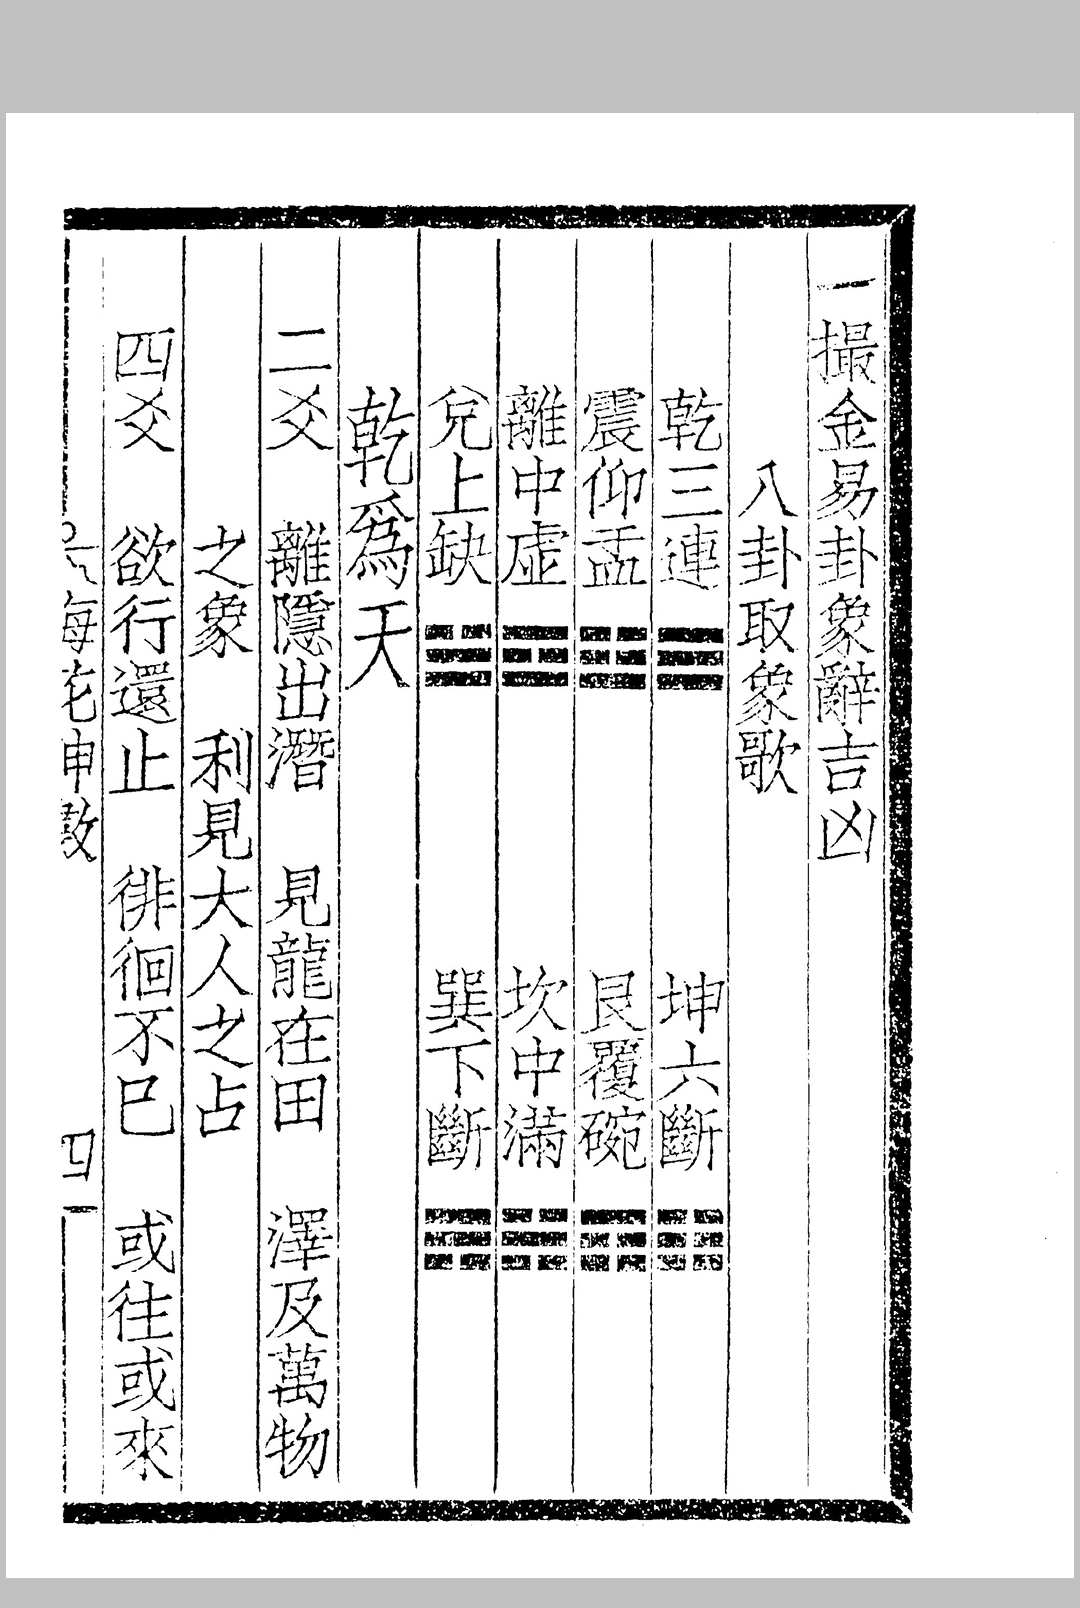 一撮金易卦象辭吉凶
八卦取象歌
乾三連☰ 坤六斷☷
震仰盂 艮覆碗
離中虛☲ 坎中滿
兌上缺☱ 巽下斷
乾為天
二爻 離隱出潛 見龍在田 澤及萬物
之象 利見大人之占
四爻 欲行還止 徘徊不已 或往或來
梅花神數
四一